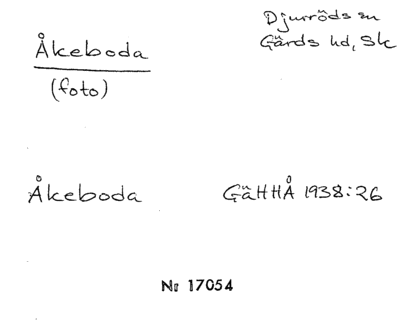 Åkeboda
(foto)
Djurröds sn
Gärds hd, Sk
Åkeboda GäHHÅ 1938:26
№ 17054